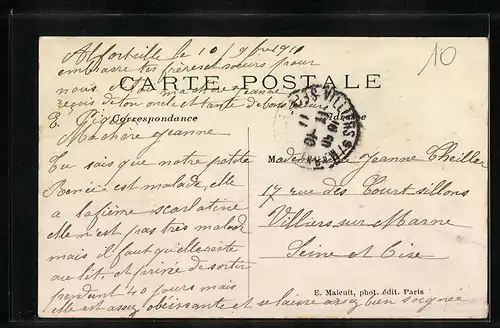 Alfortville le 10/9bre 1910
embrasse tes frères et sœurs pour
nous
CARTE POSTALE
reçois de ton oncle et tante de bons
E.
Correspondance
Adresse
Ma chère Jeanne
Tu sais que notre petite
Renée est malade, elle
a la fièvre scarlatine
elle n'est pas très malade
mais il faut qu'elle reste
au lit et privée de sortir
pendant 40 jours mais
elle est assez obéissante et se laisse assez bien soignée
10
VILLIERS S/
Jeanne Theiller
17 rue des Court sillons
Villiers sur Marne
Seine et Oise
E. Malcuit, phot. édit. Paris